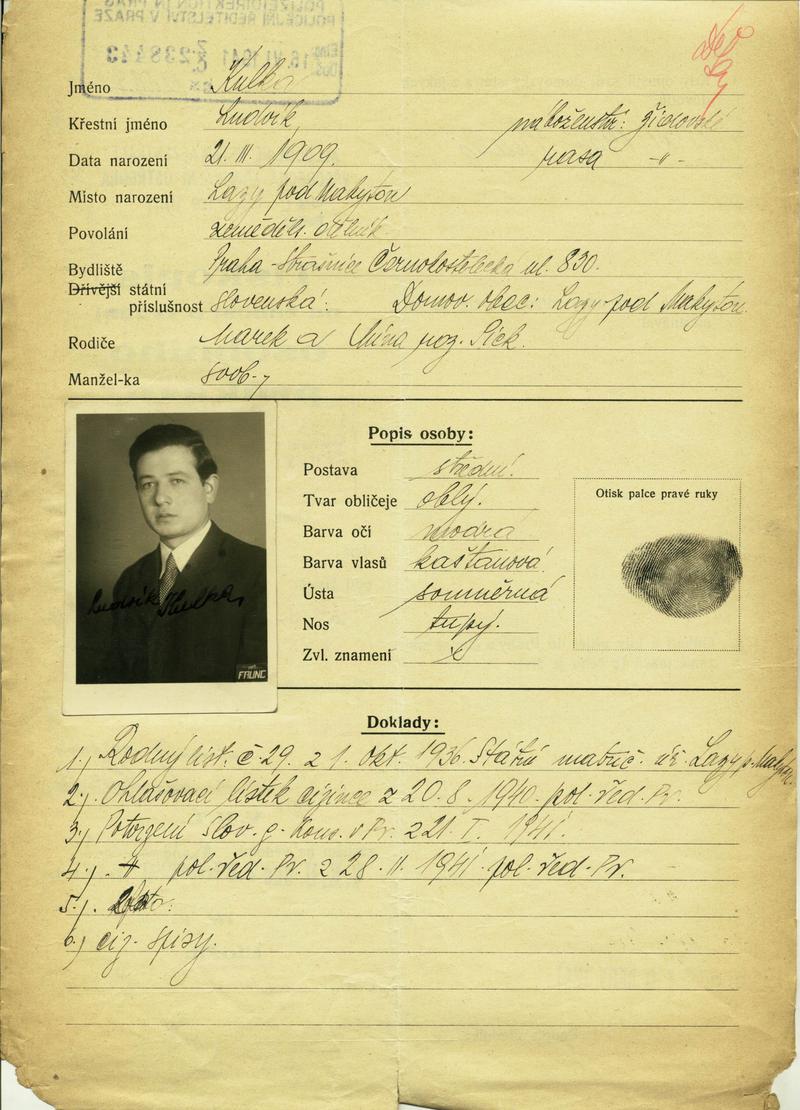 POLIZEIDIREKTION IN PRAG
POLICEJNÍ ŘEDITELSTVÍ V PRAZE
1941 238443
Jméno Kulka
Křestní jméno Ludvík náboženství: židovské
Data narození 21. III. 1909. rasa -"-
Místo narození Lazy pod Makytou
Povolání zeměděl.
Bydliště Praha-Strašnice Černokostelecká ul. 830.
Dřívější státní příslušnost slovenská. Domov. obec: Lazy pod Makytou.
Rodiče Marek a roz. Pick.
Manžel-ka svob.
Popis osoby:
Postava střední.
Tvar obličeje oblý.
Barva očí modrá
Barva vlasů kaštanová
Ústa souměrná
Nos tupý.
Zvl. znamení x
Otisk palce pravé ruky
Ludvík Kulka
FAUNC
Doklady:
1.) Rodný list. č 29. z 1. Okt. 1936. Státní matrič. úř. Lazy p. Makytou
2.) Ohlašovací lístek cizince z 20.8. 1940. pol. řed. Pr.
3.) Potvrzení Slov. g. Kons. v Pr. z 21. I. 1941.
4.) pol. řed. Pr. z 28. II. 1941 pol. řed. Pr.
5.)
6.) ciz. spisy.